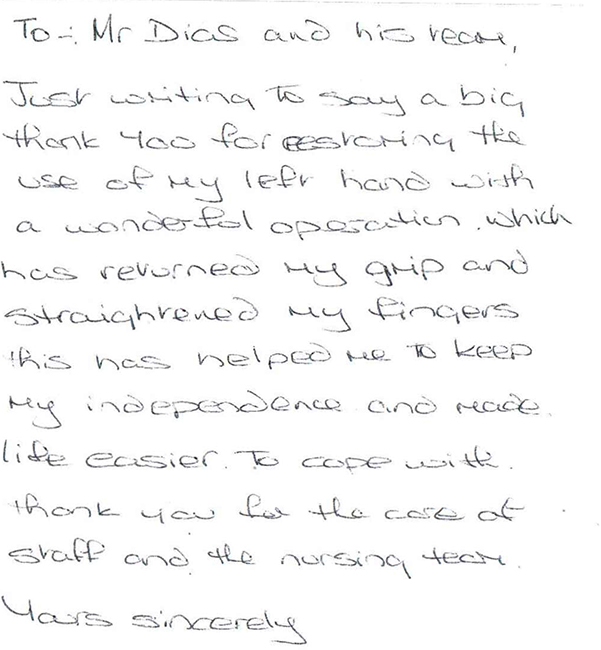 To:- Mr Dias and his team,
Just writing to say a big
thank you for restoring the
use of my left hand with
a wonderful operation. which
has returned my grip and
straightened my fingers
this has helped me to keep
my independence and made.
life easier. To cope with.
thank you for the care of
staff and the nursing team.
Yours sincerely